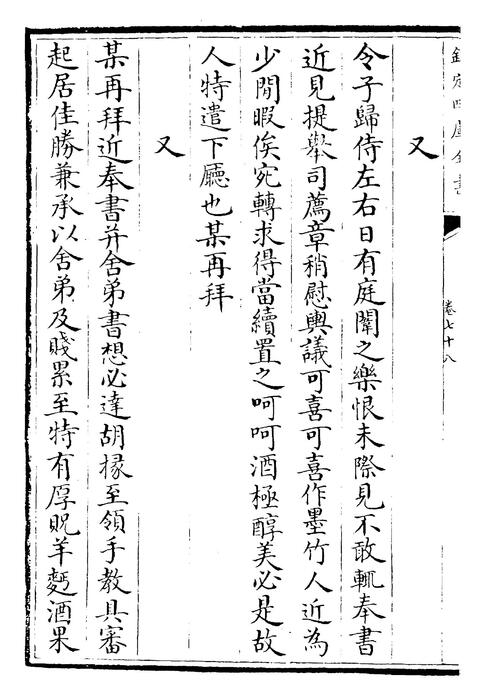 欽定四庫全書
卷七十八
又
令子歸侍左右日有庭闈之樂恨未際見不敢輒奉書
近見提舉司薦章稍慰輿議可喜可喜作墨竹人近為
少閒暇俟宛轉求得當續置之呵呵酒極醇美必是故
人特遣下廳也某再拜
又
某再拜近奉書并舍弟書想必達胡掾至領手教具審
起居佳勝兼承以舍弟及賤累至特有厚貺羊麪酒果